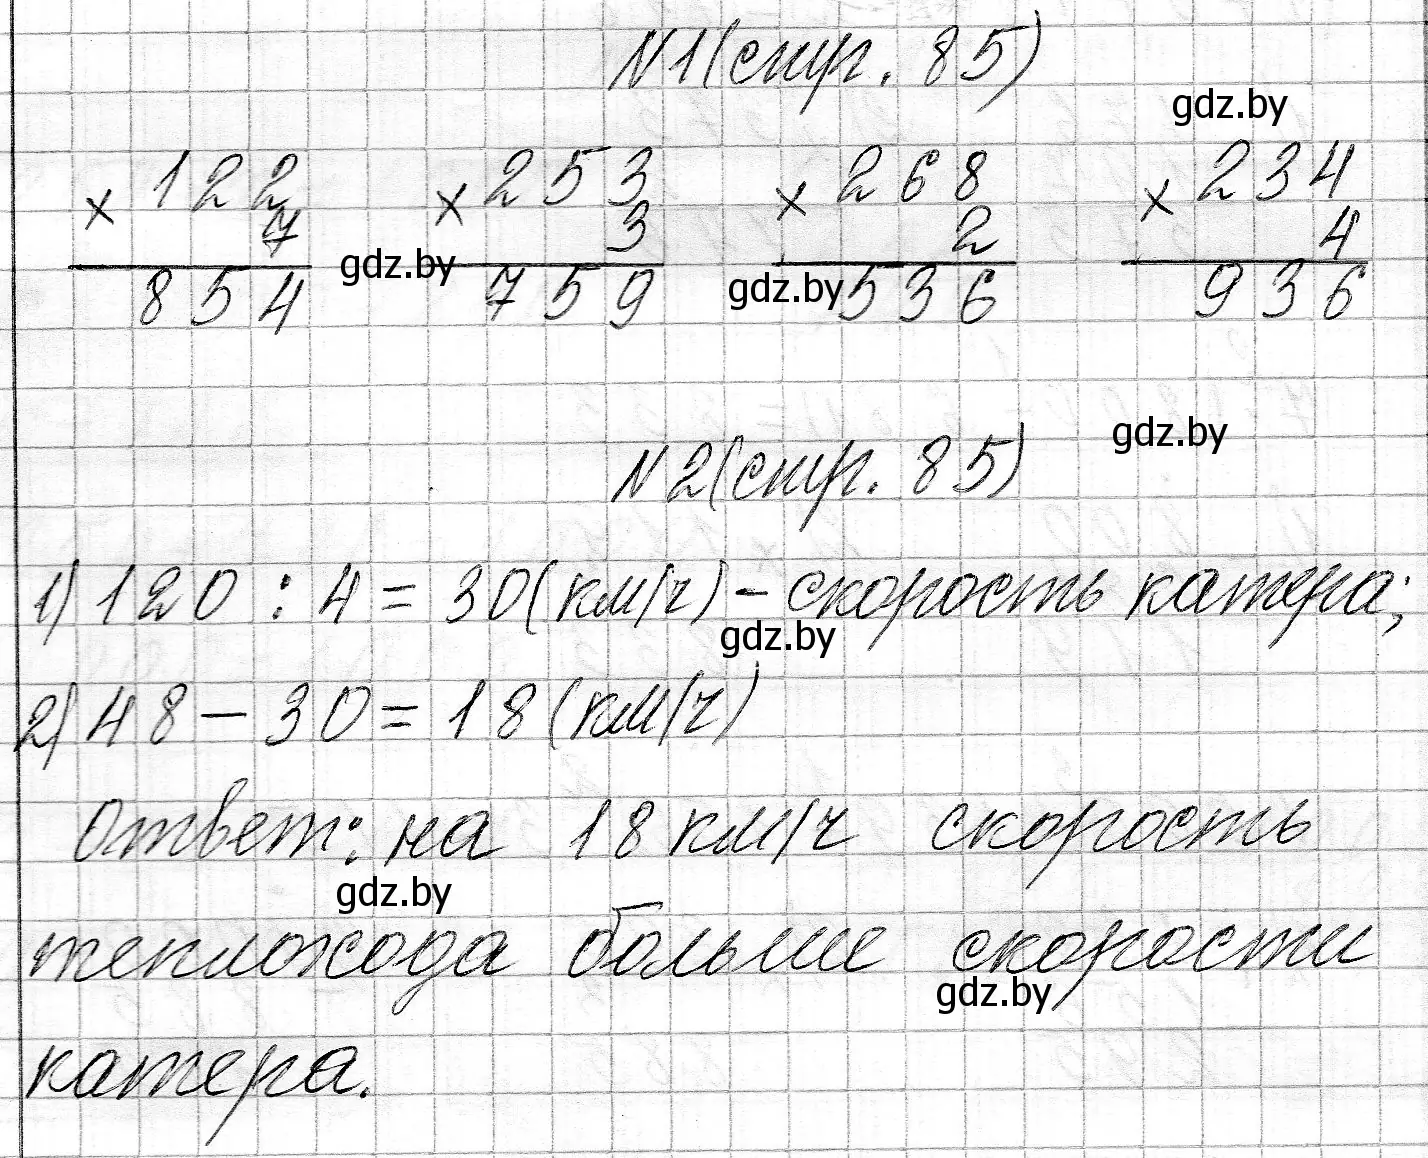 N1(стр. 85)
gdz.by
× 122 × 253 × 268 × 234
7 3 2 4
gdz.by gdz.by
854 759 536 936
gdz.by
N2(стр. 85)
1) 120 : 4 = 30(км/ч) – скорость катера;
gdz.by
2) 48 – 30 = 18 (км/ч)
Ответ: на 18 км/ч скорость
gdz.by
теплохода больше скорости
gdz.by
катера.